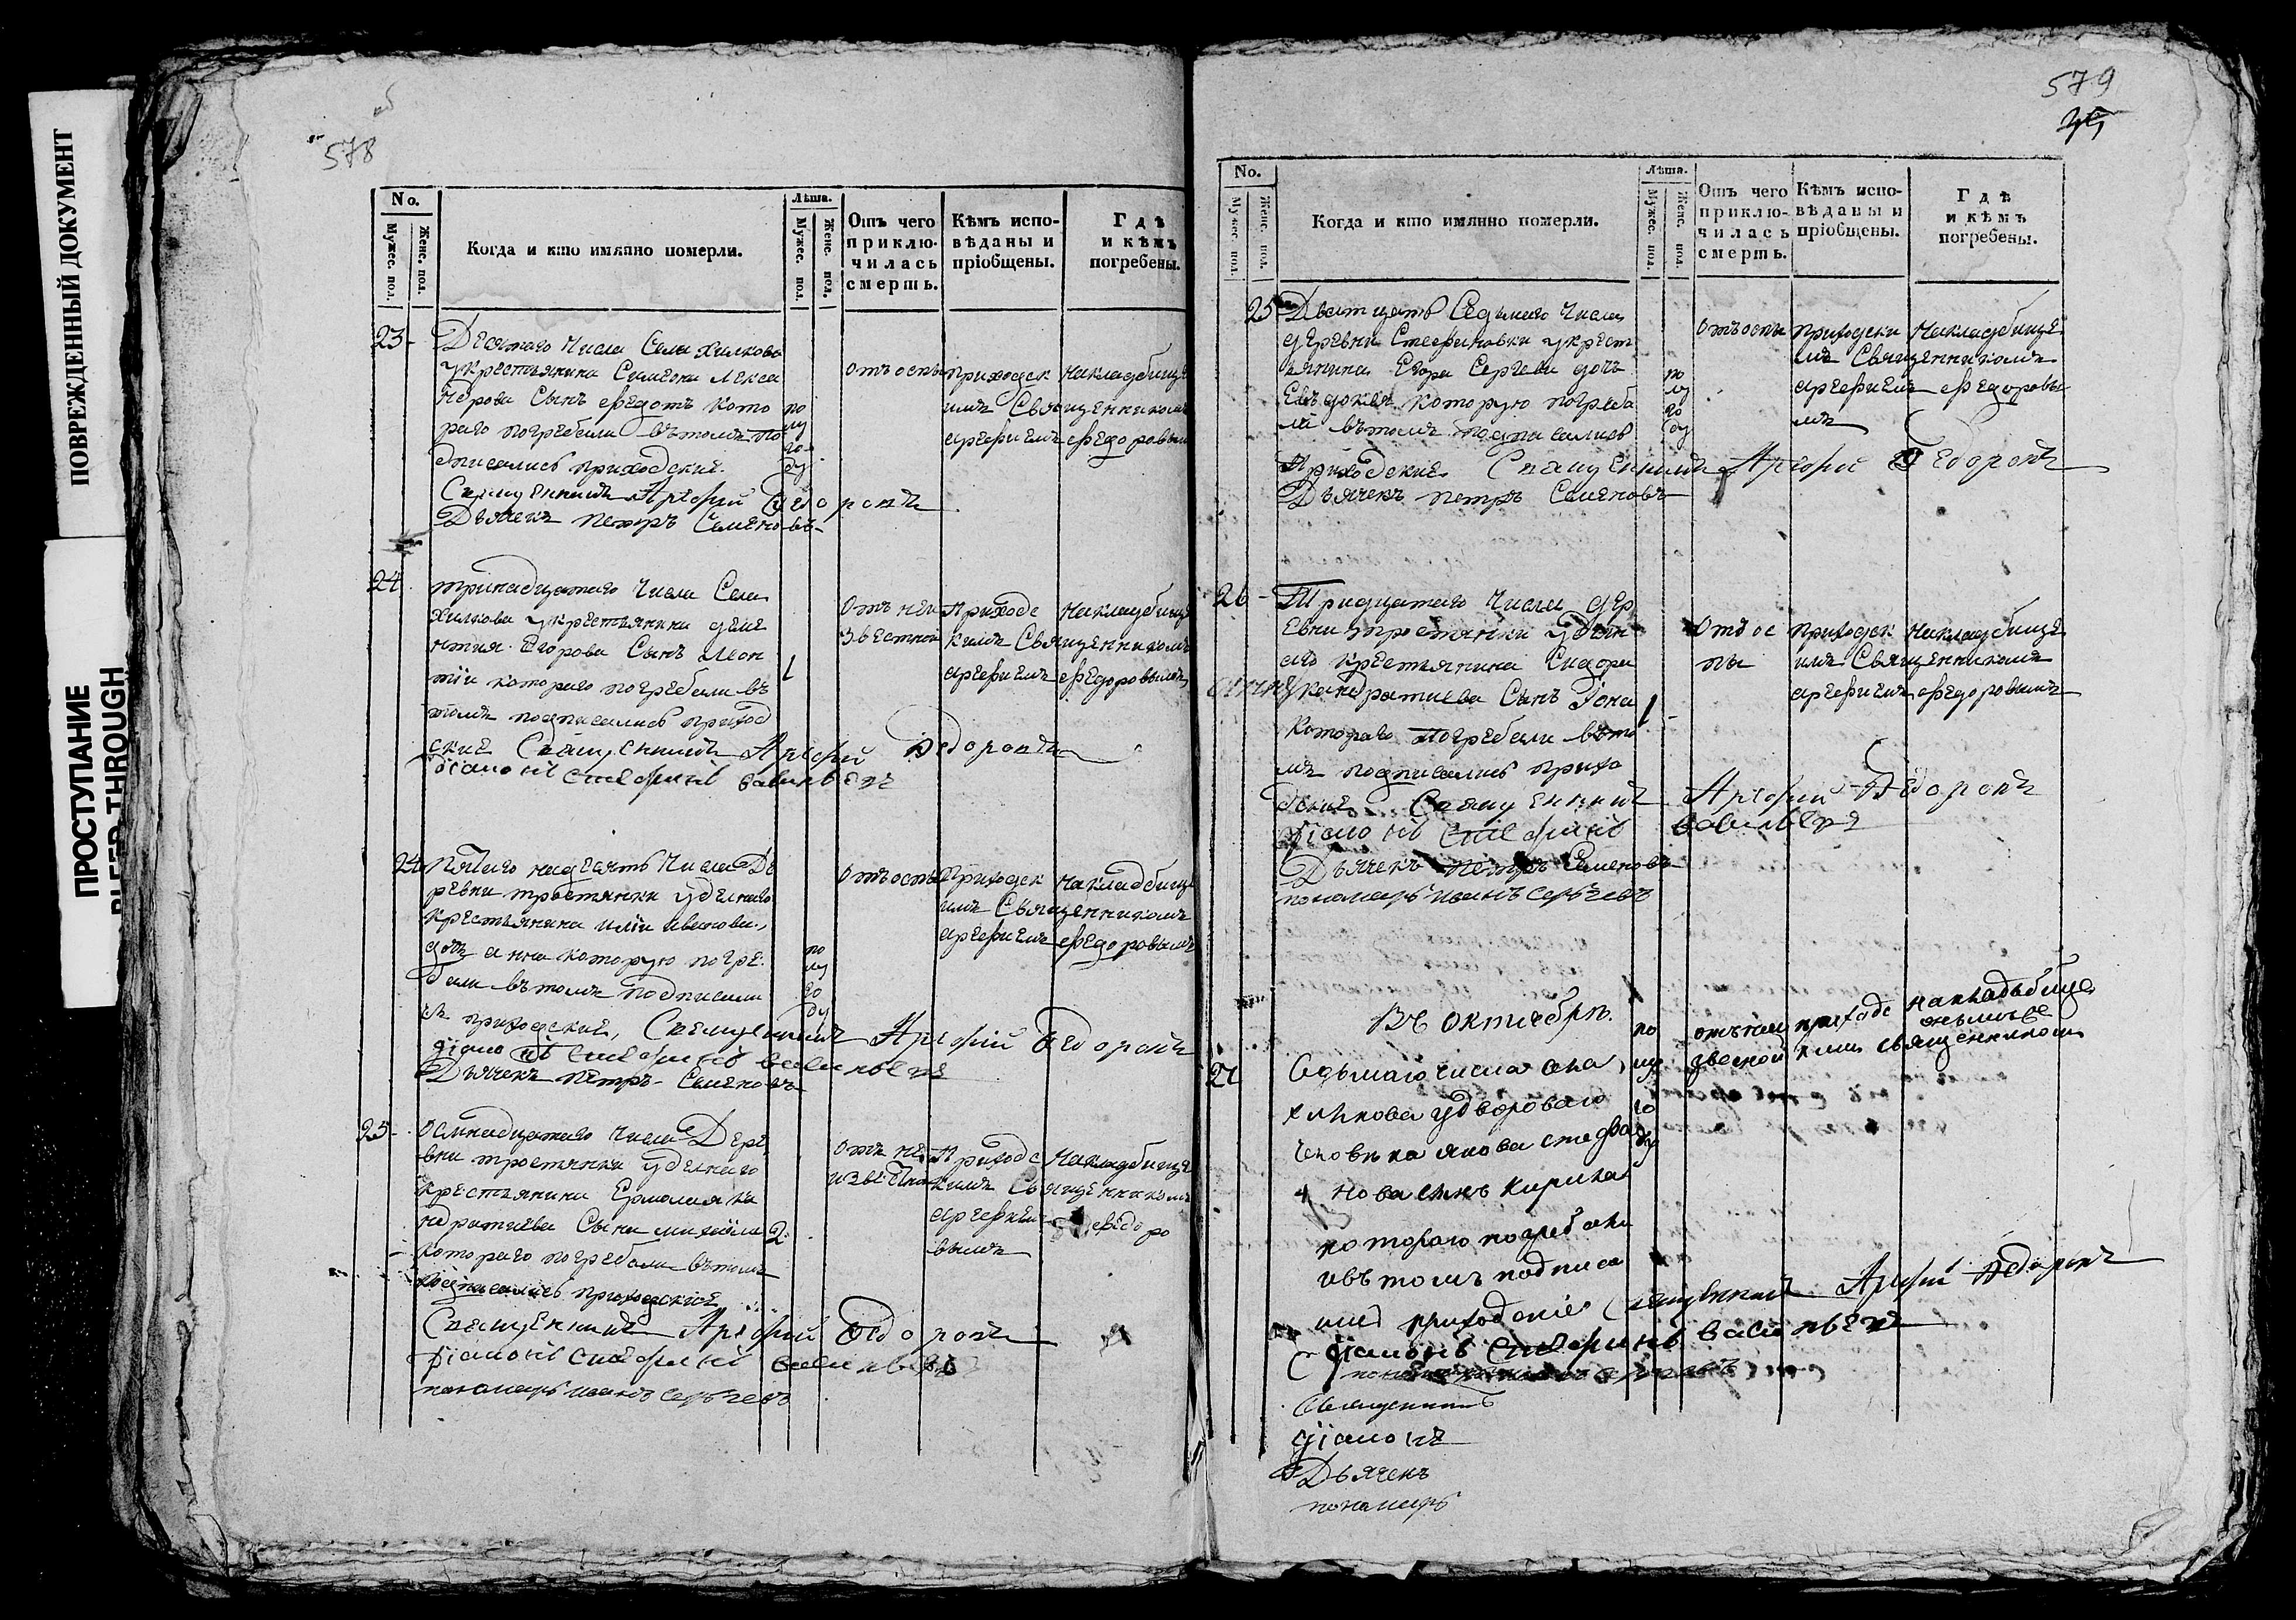 ПОВРЕЖДЕННЫЙ ДОКУМЕНТ
ПРОСТУПАНИЕ
BLEED THROUGH
578
No.
Мужес. пол.
Женс. пол.
Когда и кто имянно померли.
Лѣта.
Мужес. пол.
Женс. пол.
Отъ чего приклю-чилась смерть.
Кѣмъ испо-вѣданы и пріобщены.
Гдѣ и кѣмъ погребены.
23
Десятаго числа Села Хилкова
укрестьянина Симеона Алекса
ндрова Сынъ Федотъ кото
раго погребали вътомъ по
дписались приходские
Священникъ Арефий Федоровъ
Дьячекъ Петръ Семеновъ
по
лу
го
ду
отъоспы
приходск
имъ Священникомъ
арефиемъ Федоровым
накладбище
24
тринадцатаго числа Села
Хилкова укрестьянина деме
нтия Егорова Сынъ Леон
тіи котораго погребали въ
томъ подписались приход
ские Священникъ Арефий Федоровъ
діаконъ Стефанъ Васильевъ
1
Отъ неи
звестной
Приходс
кимъ Священникомъ
арефиемъ Федоровымъ
накладбище
24
Пятаго надесять числа Де
ревни тростянки уделнаго
крестьянина Илiи иванова
дочь анна которую погре
бали вътомъ подписали
сь приходские, Священникъ Арефий Федоровъ
діаконъ Стефанъ Васильевъ
Дьячекъ Петръ Семеновъ
по
лу
го
ду
Отъоспы
Приходск
имъ Священникомъ
арефиемъ Федоровымъ
накладбище
25
Осмнадцатаго числа Дере
вни тростянки уделнаго
крестьянина Ермолая ка
ндратиева Сына михаила
котораго погребали вътомъ
подписались приходские
Священникъ Арефий Федоровъ
діаконъ Стефанъ Васильевъ
пономарь иванъ Сергеевъ
2
отъ не
известно
Приходс
кимъ Священникомъ
арефием Федоро
вымъ
накладбище
579
No.
Мужес. пол.
Женс. пол.
Когда и кто имянно померли.
Лѣта.
Мужес. пол.
Женс. пол.
Отъ чего приклю-чилась смерть.
Кѣмъ испо-вѣданы и пріобщены.
Гдѣ и кѣмъ погребены.
25
Дватцать Седмаго числа
деревни Стефановки укрест
ьянина Егора Сергева дочь
Евъдокия которую погреба
ли вътомъ подписались
Приходские Священникъ Арефий Федоровъ
Дьячекъ Петръ Семеновъ
по
лу
го
ду
отъоспы
приходски
мъ Священникомъ
арефиемъ Федоровы
мъ
накладбище
26
Тридцатаго числа дер
евни тростянки уделн
аго крестьянина Сидора
кандратиева Сынъ Иона
котораго погребали вето
мъ подписались прихо
дские Священникъ Арефий Федоровъ
діаконъ Стефанъ Васильевъ
Дьячекъ Петръ Семеновъ
пономарь иванъ Сергеевъ
1
Отъ ос
пы
приходск
имъ Священникомъ
арефиемъ Федоровымъ
накладбище
Въ октябрѣ.
27
Седьмаго числа села
хилкова удвороваго
человѣка якова стефа
нова сынъ кирила
котораго погребали
ивътомъ подписа
лись приходские Священникъ Арефий Федоровъ
діаконъ Стефанъ Васильевъ
Священникъ
діаконъ
Дьячекъ
пономарь
по
лу
го
ду
отънеи
звесной
приходс
кимъ священникомъ
накладъбище